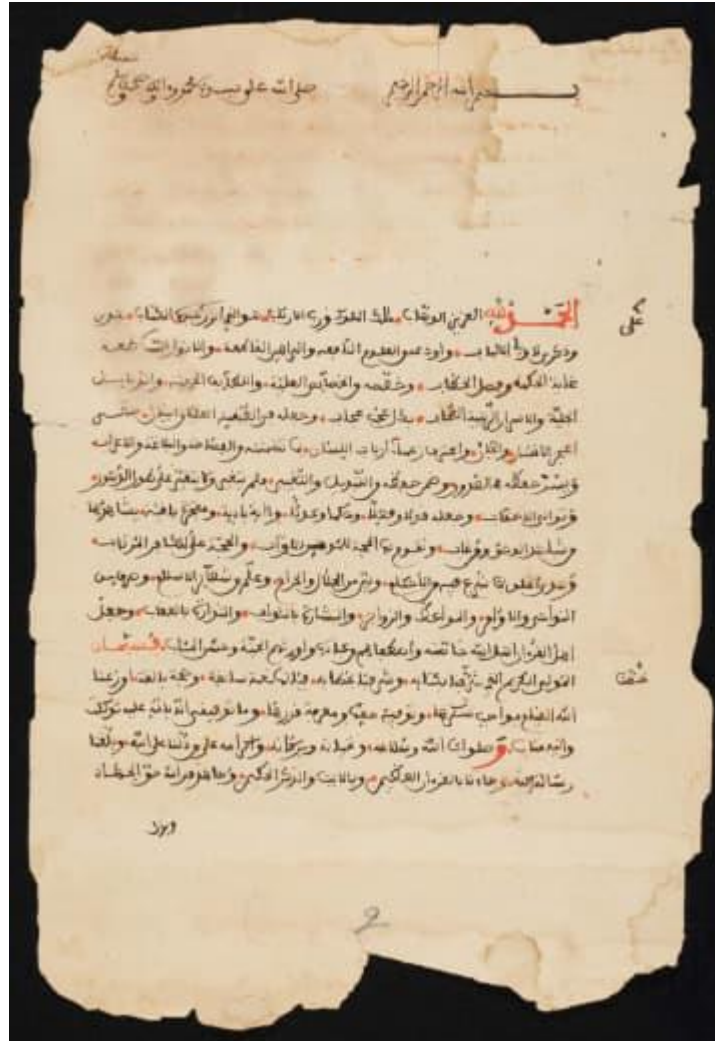 بسم الله الرحمن الرحيم صلى الله على سيدنا محمد وآله وصحبه وسلم
الحمد لله العزيز الوهاب مالك الملوك ورب الأرباب هو الذي أنزل على عبده الكتاب هدى
وذكرى لأولي الألباب وأودعه من العلوم النافعة والبراهين القاطعة والأنوار الساطعة
غاية الحكمة وفصل الخطاب وخصصه من الخصائص العلية واللطائف الخفية والدلائل
الجلية والأسرار الربانية العجاب بكل عجب عجاب وجعله في الطبقة العليا من البيان حتى
أعجز الإنسان والجان واعترف علماء أرباب اللسان بما تضمنه من الفصاحة والبلاغة والإغراب
ويسر حفظه في الصدور وضمن حفظه من التبديل والتغيير فلم يتغير ولا يتغير على طول الدهور
وتوالي الأحقاب وجعله قولا فصلا وحكما عدلا وآية بادية ومعجزة باقية يشاهدها
من شهد الوحي ومن غاب وتقوم بها الحجة للمؤمن الأواب والحجة على الكافر المرتاب
وهدى الخلق بما شرع فيه من الأحكام وبين من الحلال والحرام وعلم من شعائر الإسلام وصرف من
النواهي والأوامر والمواعظ والزواجر والبشارة بالثواب والنذارة بالعقاب وجعل
أهل القرآن أهل الله وخاصته واصطفاهم من عباده وأورثهم الجنة وحسن المئاب فسبحان
المولى الكريم الذي خصنا بكتابه وشرفنا بخطابه فيا له من نعمة سابغة وحجة بالغة أوزعنا
الله القيام بواجب شكرها وتوفية حقها ومعرفة قدرها وما توفيقي إلا بالله عليه توكلت
وإليه متاب وصلوات الله وسلامه وتحياته وبركاته وإكرامه على من دلنا على الله وبلغنا
رسالة الله وجاءنا بالقرآن العظيم وبالآيات والذكر الحكيم وجاهد في الله حق الجهاد